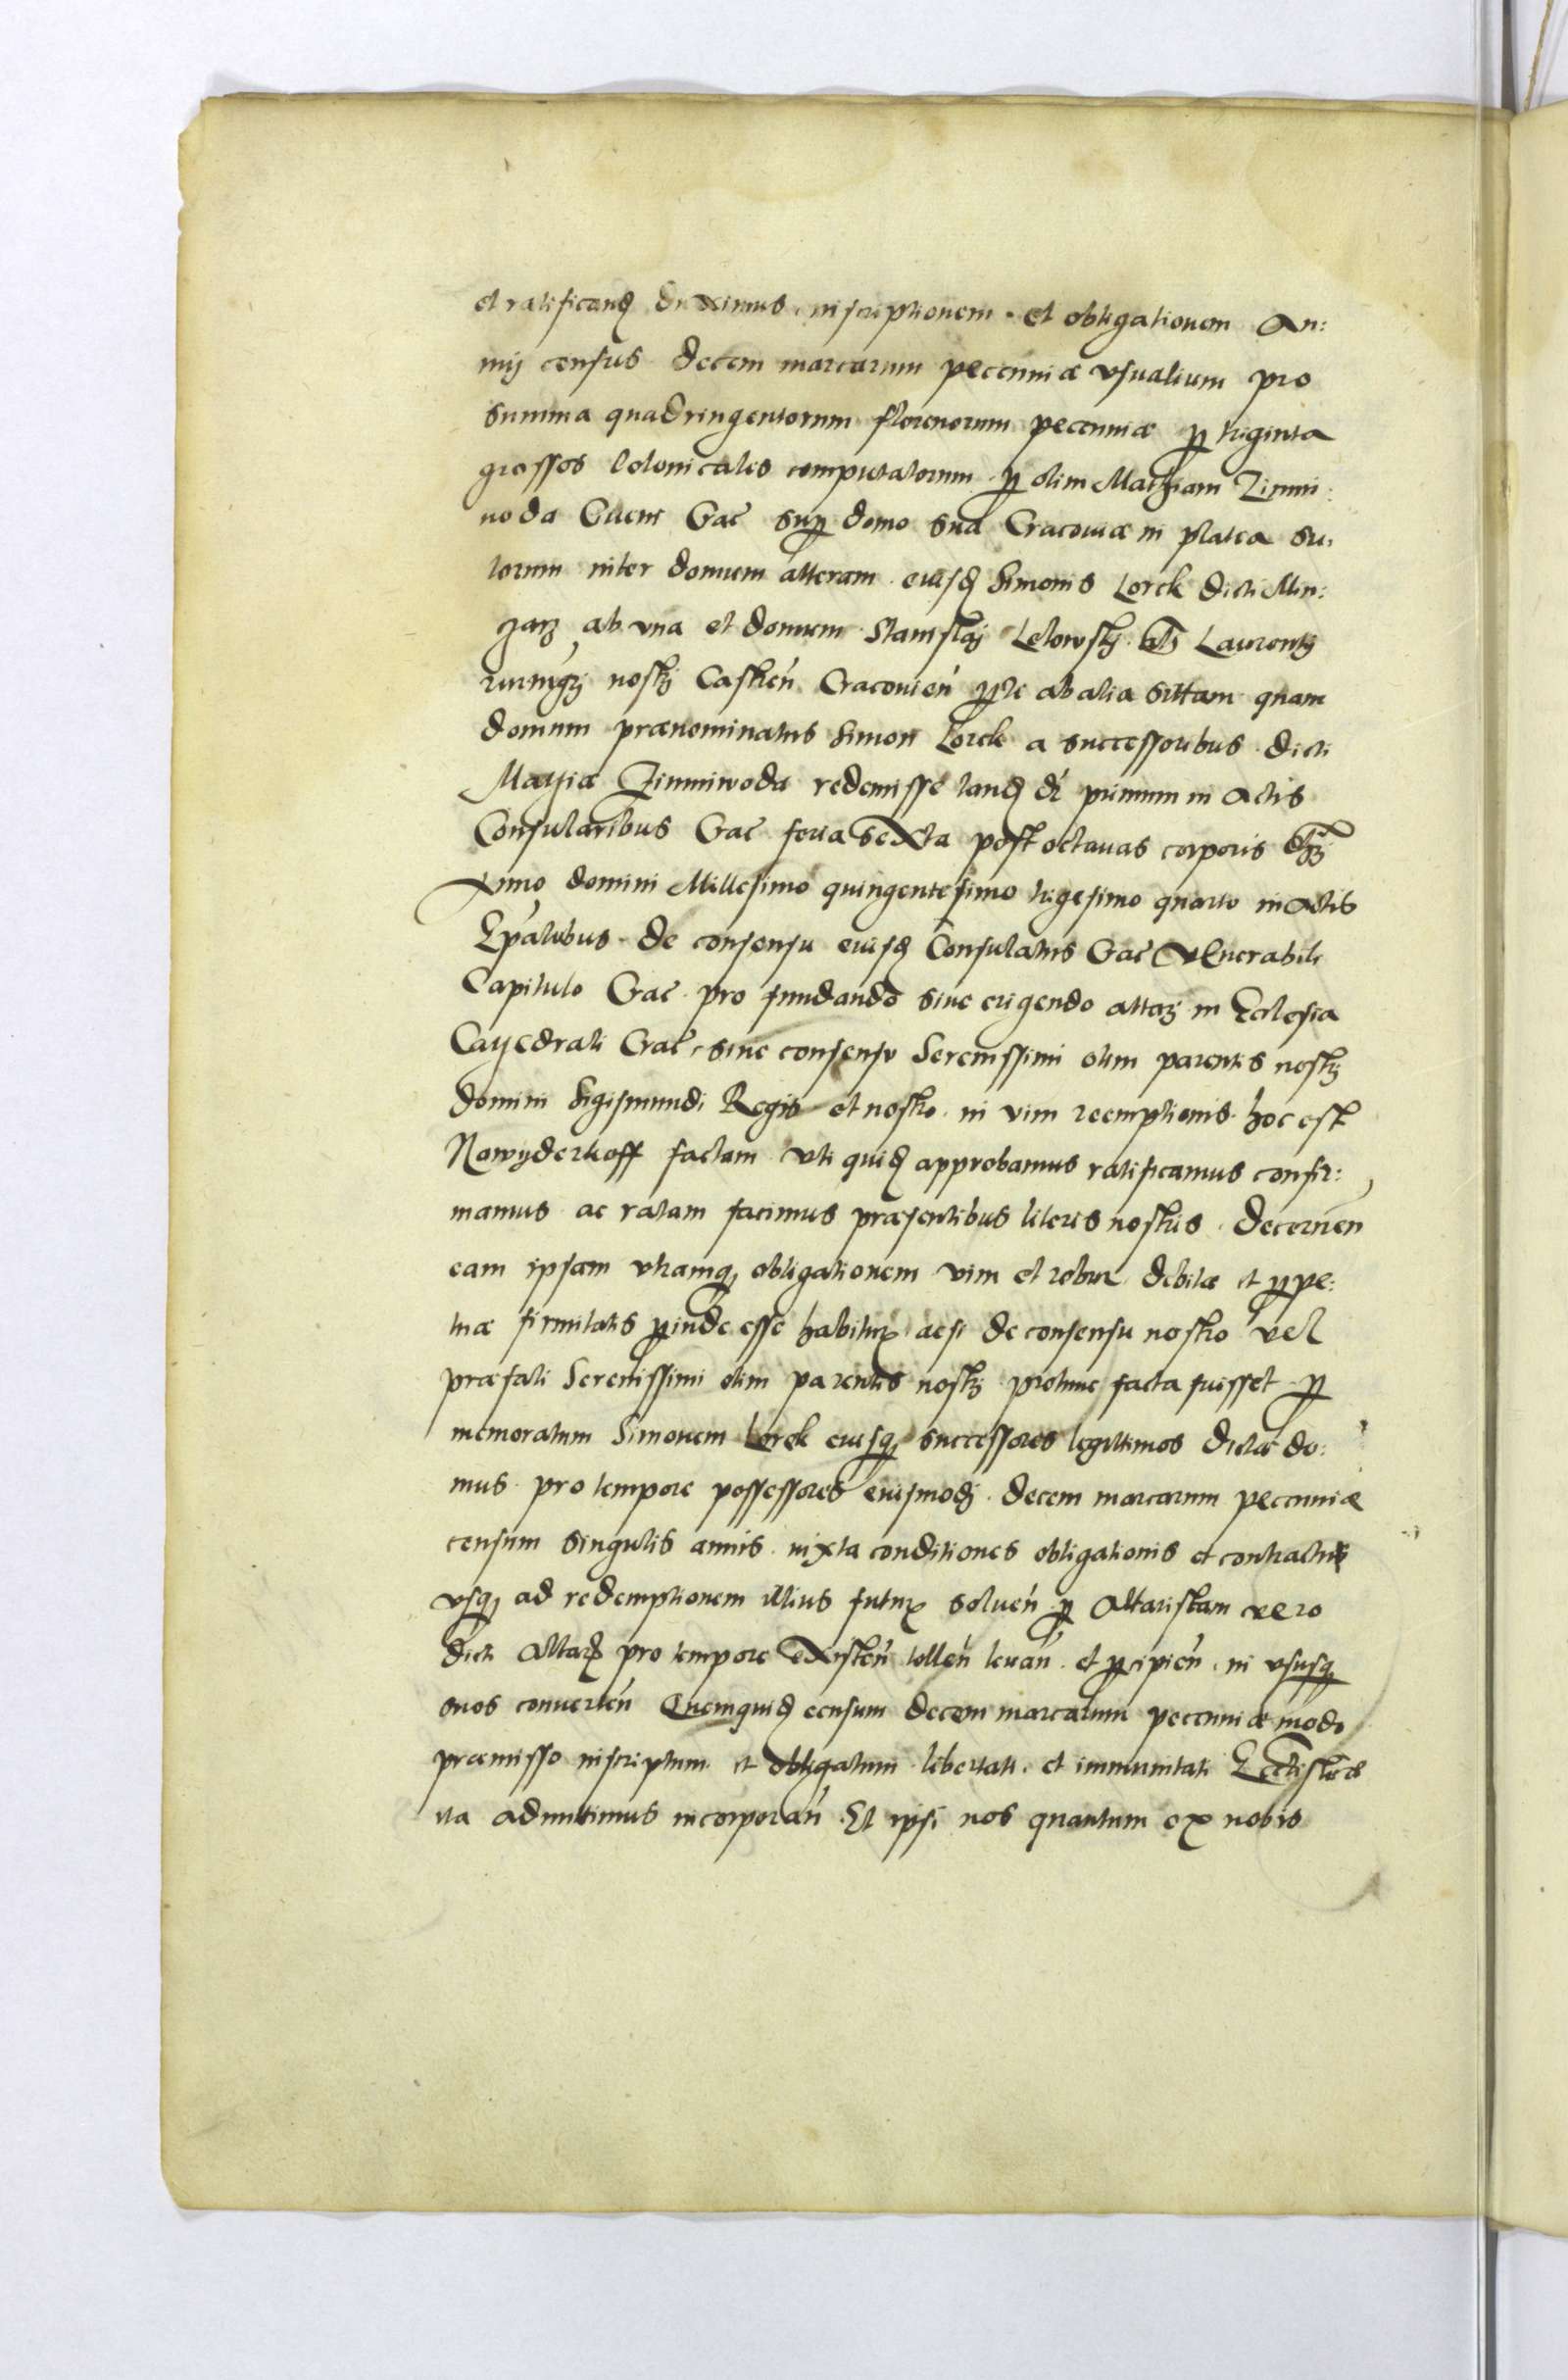 et ratificand duximus inscriptionem et obligationem An:
nuj census decem marcarum pecuniæ vsualium pro
summa quadringentorum florenorum pecuniæ p triginta
grossos computatorum p olim Mathiam Zimni:
voda Ciuem Crac sup domo sua Cracouiæ in platea su,
torum inter domum alteram eiusd Simonis Lorek dicti Min:
czarz ab vna et domum Stanislaj Lelowskj Laurentij
nostrj Castren Cracouien pte ab alia sittam quam
domum prænominatus Simon Lorek a successoribus dicti
Mathiæ Zimniwoda redemisse tand dr primum in Actis
Consularibus Crac feria sexta post octauas corporis Chri
Anno domini Millesimo quingentesimo trigesimo quarto in Actis
Epalibus de consensu eiusd Consulatus Crac Venerabili
Capitulo Crac pro fundando siue erigendo altarj in Ecclesia
Cathedrali Crac, sine consensu Serenissimi olim parentis nostrj
domini Sigismundi Regis et nostro in vim reemptionis hoc est
Nawyderkoff factam vti quid approbamus ratificamus confir:
mamus ac ratam facimus præsentibus literis nostris. Decernen
eam ipsam vtramq obligationem vim et robur debitæ et ppe:
tuæ firmitatis pinde esse habitur acsi de consensu nostro vel
præfati Serenissimi olim parentis nostrj protunc facta fuisset p
memoratum Simonem Lorek eiusq successores legittimos dictæ do:
mus pro tempore possessores eiusmodj decem marcarum pecuniæ
censum singulis annis iuxta conditiones obligationis et contractus
vsq ad redemptionem illius futur soluen p Altaristam vero
dicti Altar pro tempore existen tollen leuan et pcipien in vsusq
suos conuerten Quemquid censum decem marcarum pecuniæ modo
præmisso inscriptum et obligatum libertati et immunitati Ecclisticæ
ita admittimus incorporan Et ipsi nos quantum ex nobis